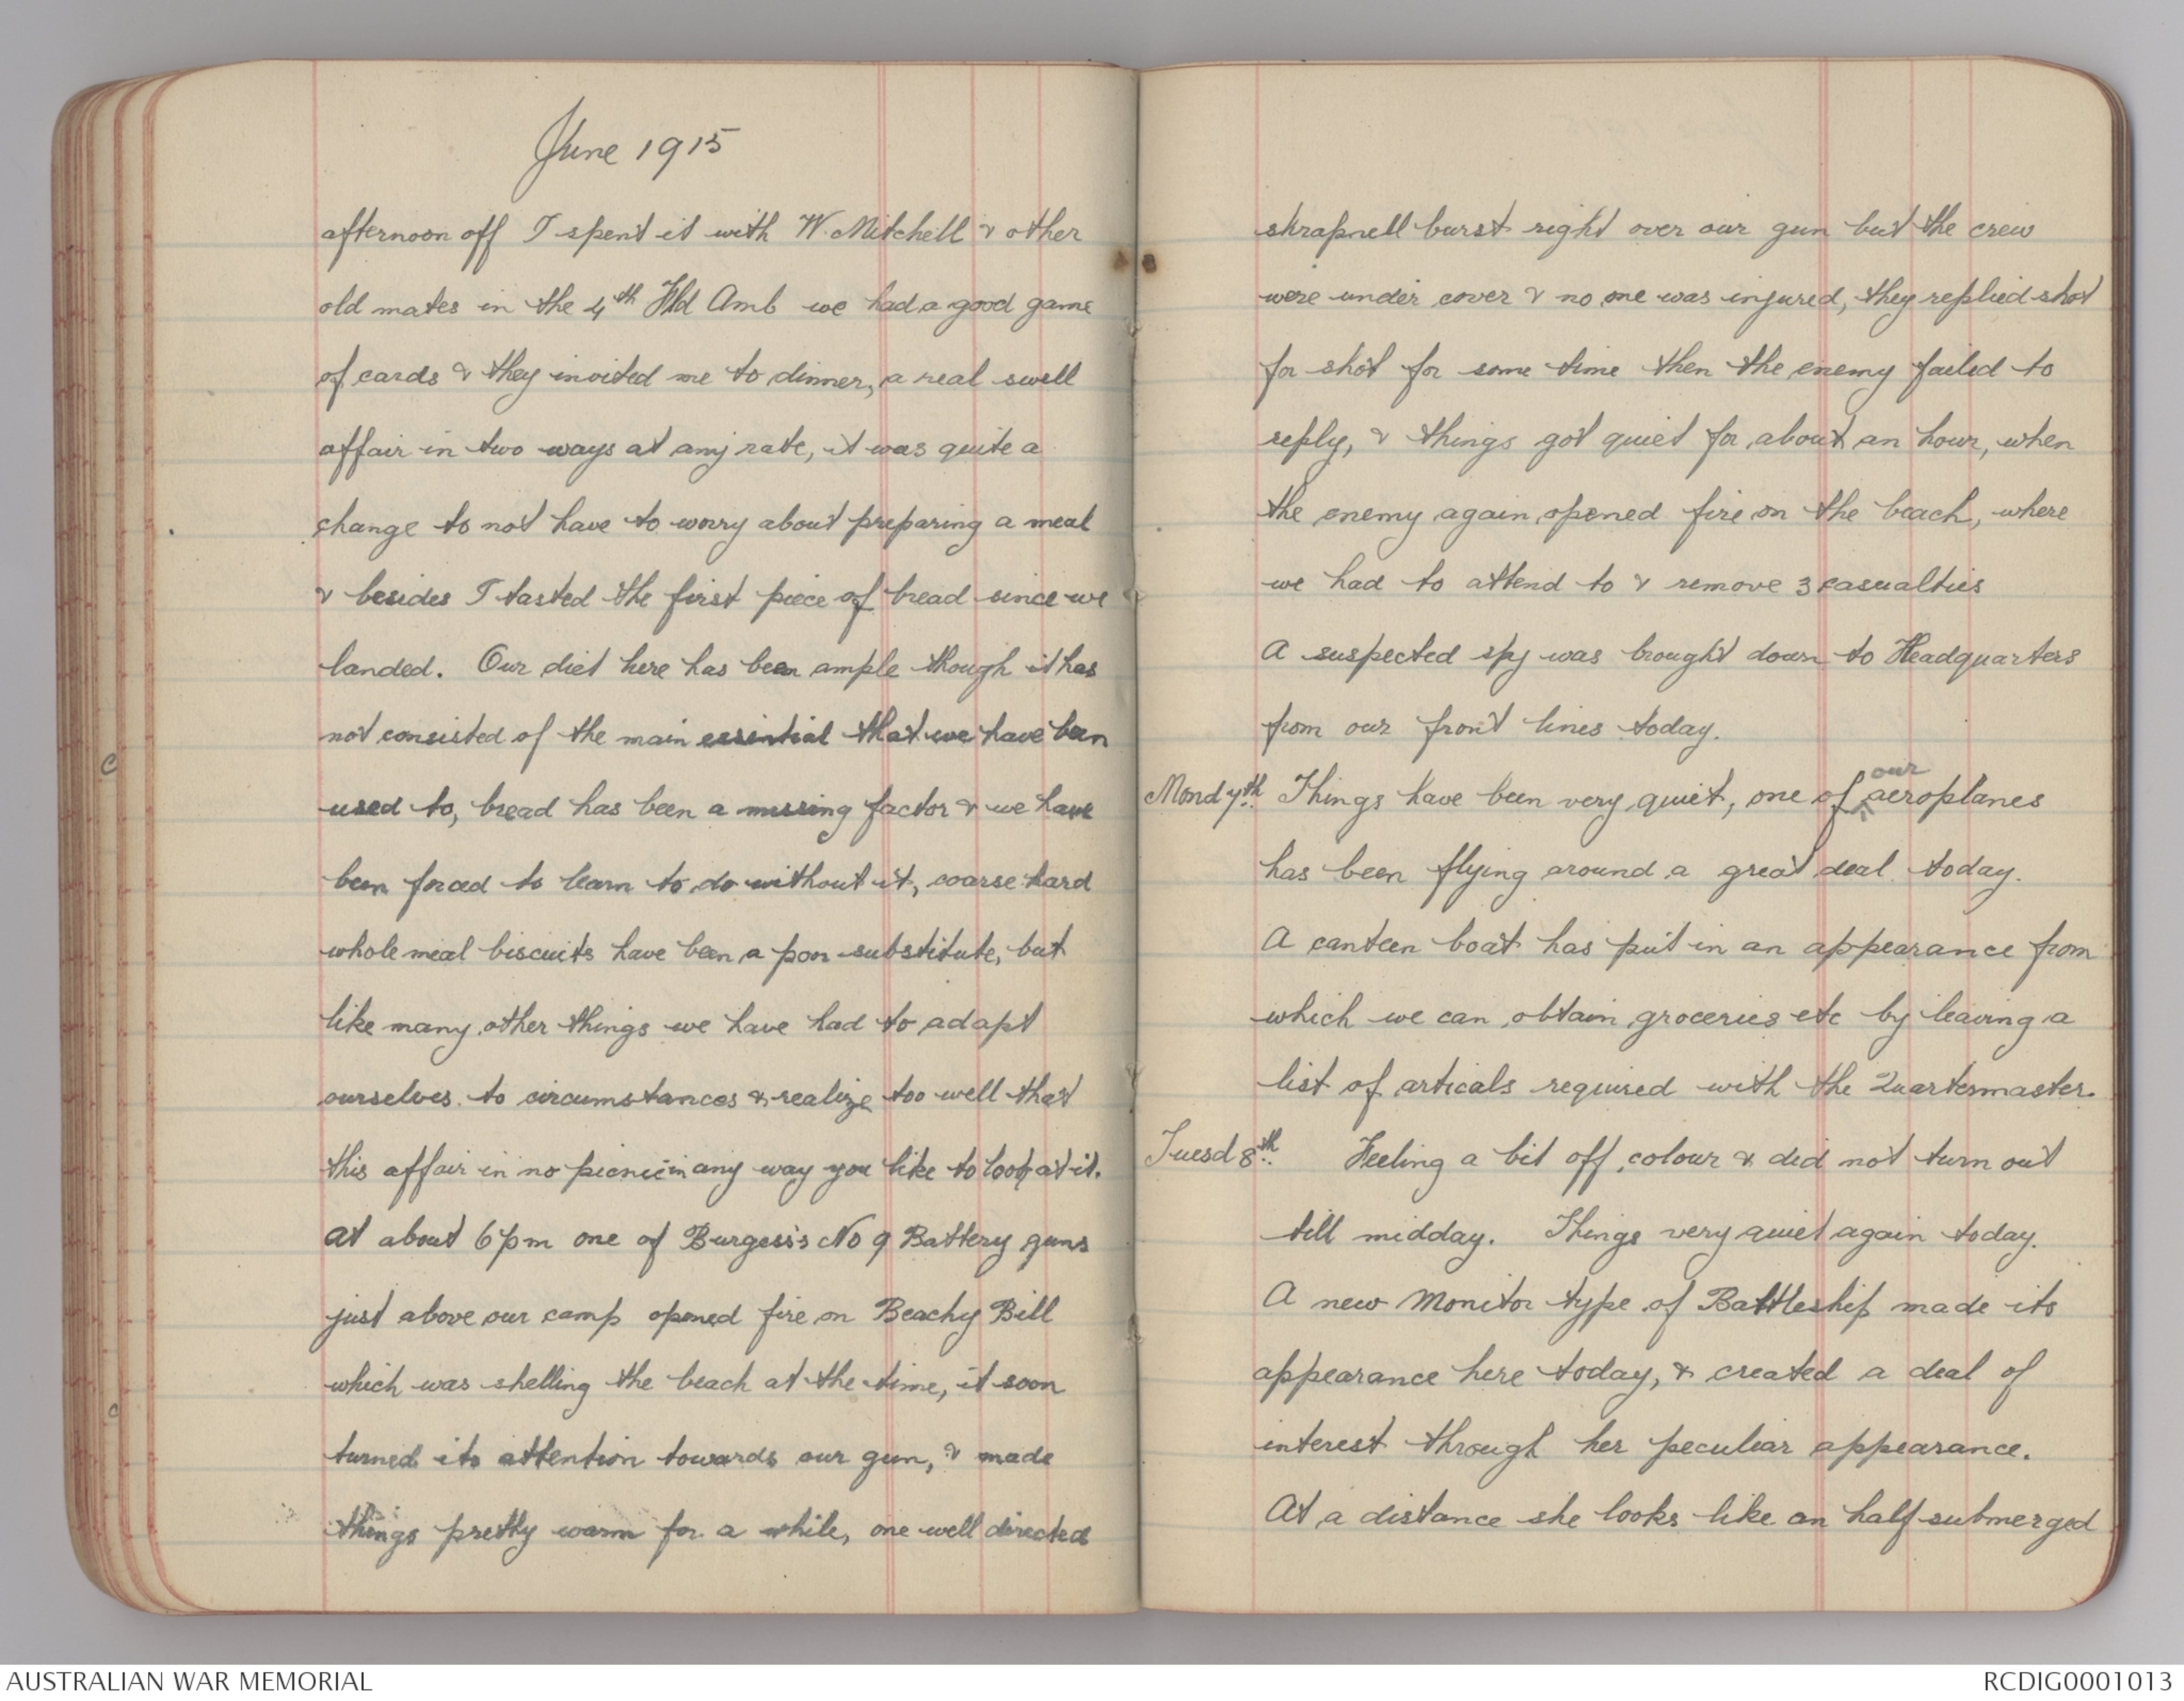 June 1915
afternoon off I spent it with W. Mitchell & other
old mates in the 4th Fld Amb we had a good game
of cards & they invited me to dinner, a real swell
affair in two ways at any rate, it was quite a
change to not have to worry about preparing a meal
& besides I tasted the first piece of bread since we
landed. Our diet here has been ample though it has
not consisted of the main essential that we have been
used to, bread has been a missing factor & we have
been forced to learn to do without it, coarse hard
whole meal biscuits have been a poor substitute, but
like many other things we have had to adapt
ourselves to circumstances & realize too well that
this affair in no picnic in any way you like to look at it.
At about 6 pm one of Burgess's No 9 Battery guns
just above our camp opened fire on Beachy Bill
which was shelling the beach at the time, it soon
turned its attention towards our gun, & made
things pretty warm for a while, one well directed
shrapnell burst right over our gun but the crew
were under cover & no one was injured, they replied shot
for shot for some time then the enemy failed to
reply, & things got quiet for about an hour, when
the enemy again opened fire on the beach, where
we had to attend to & remove 3 casualties
A suspected spy was brought down to Headquarters
from our front lines today.
Mond 7th. Things have been very quiet, one of our aeroplanes
has been flying around a great deal today.
A canteen boat has put in an appearance from
which we can obtain groceries etc by leaving a
list of articals required with the Quartermaster.
Tuesd 8th. Feeling a bit off colour & did not turn out
till midday. Things very quiet again today.
A new Monitor type of Battleship made its
appearance here today, & created a deal of
interest through her peculiar appearance.
At a distance she looks like an half submerged
AUSTRALIAN WAR MEMORIAL
RCDIG0001013